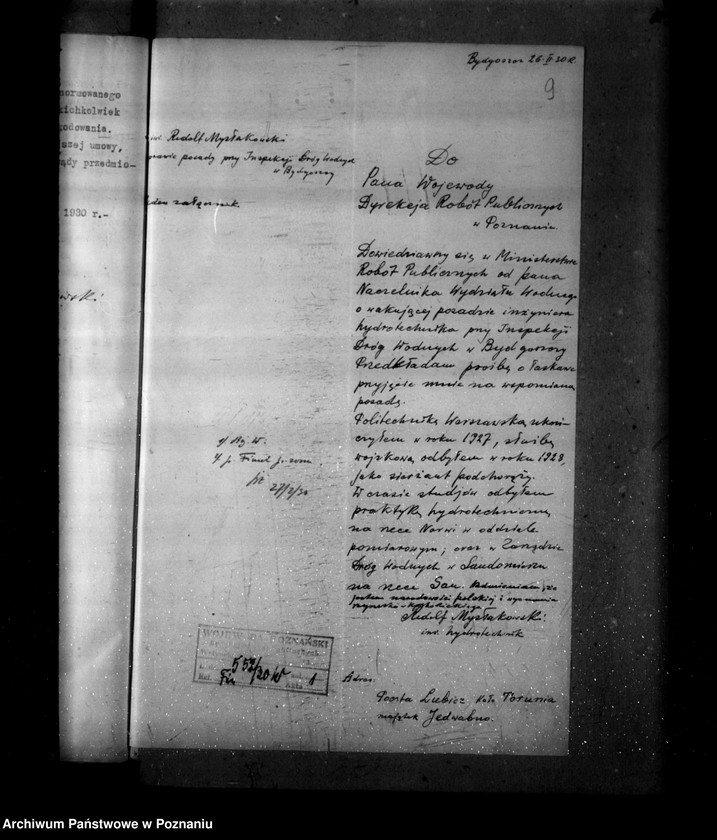 normowanego
kichkolwiek
godowania.
szej umowy,
ądy przedmio-
1930 r.-
Bydgoszcz 26.II 30 r.
9
inż. Rudolf Mysłakowski
sprawie posady przy Inspekcji Dróg Wodnych
w Bydgoszczy
jeden załącznik.
Do
Pana Wojewody
Dyrekcja Robót Publicznych
w Poznaniu
Dowiedziawszy się w Ministerstwie
Robót Publicznych od pana
Naczelnika Wydziału Wodnego
o wakującej posadzie inżyniera
hydrotechnika przy Inspekcji
Dróg Wodnych w Bydgoszczy
Przedkładam prośbę o łaskawe
przyjęcie mnie na wspomianą
posadę.
Politechnikę Warszawską ukoń-
czyłem w roku 1927, służbę
wojskową odbyłem w roku 1928,
jako sierżant podchorąży.
W czasie studjów odbyłem
praktykę hydrotechniczną
na rzece Narwi w oddziale
pomiarowym; oraz w Zarządzie
Dróg Wodnych w Sandomierzu
na rzece San. Nadmieniam, że
jestem narodowości polskiej i wyznania
rzymsko-katolickiego
Rudolf Mysłakowski
inż. hydrotechnik
27/2/30
WOJEWODA POZNAŃSKI
557/30 W
Adres:
Poczta Lubicz koło Torunia
majątek Jedwabno.
Archiwum Państwowe w Poznaniu